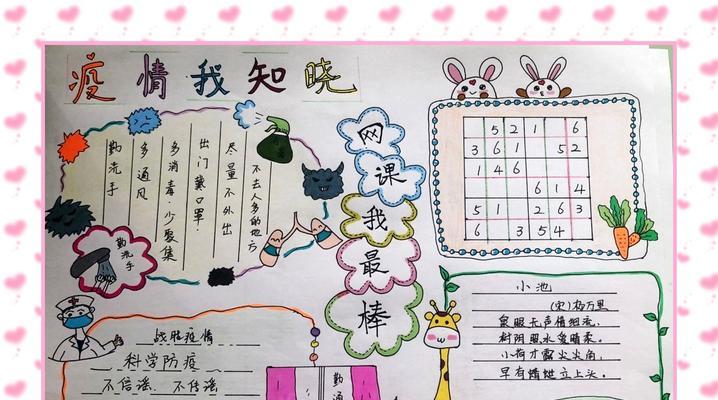 疫情我知晓
勤洗手
多通风
多消毒·少聚集
出门戴口罩·
尽量不外出
不去人多的地方
勤洗手
网课我最棒
5 2 1 6
3 6 1 5 2
1 4 6
6 1 4
5 1 2 6 3
6 3 5 4
小池
(宋)杨万里
泉眼无声惜细流,
树阴照水爱晴柔。
小荷才露尖尖角,
早有蜻蜓立上头。
战胜疫情
科学防疫
不信谣 不传谣
勤通